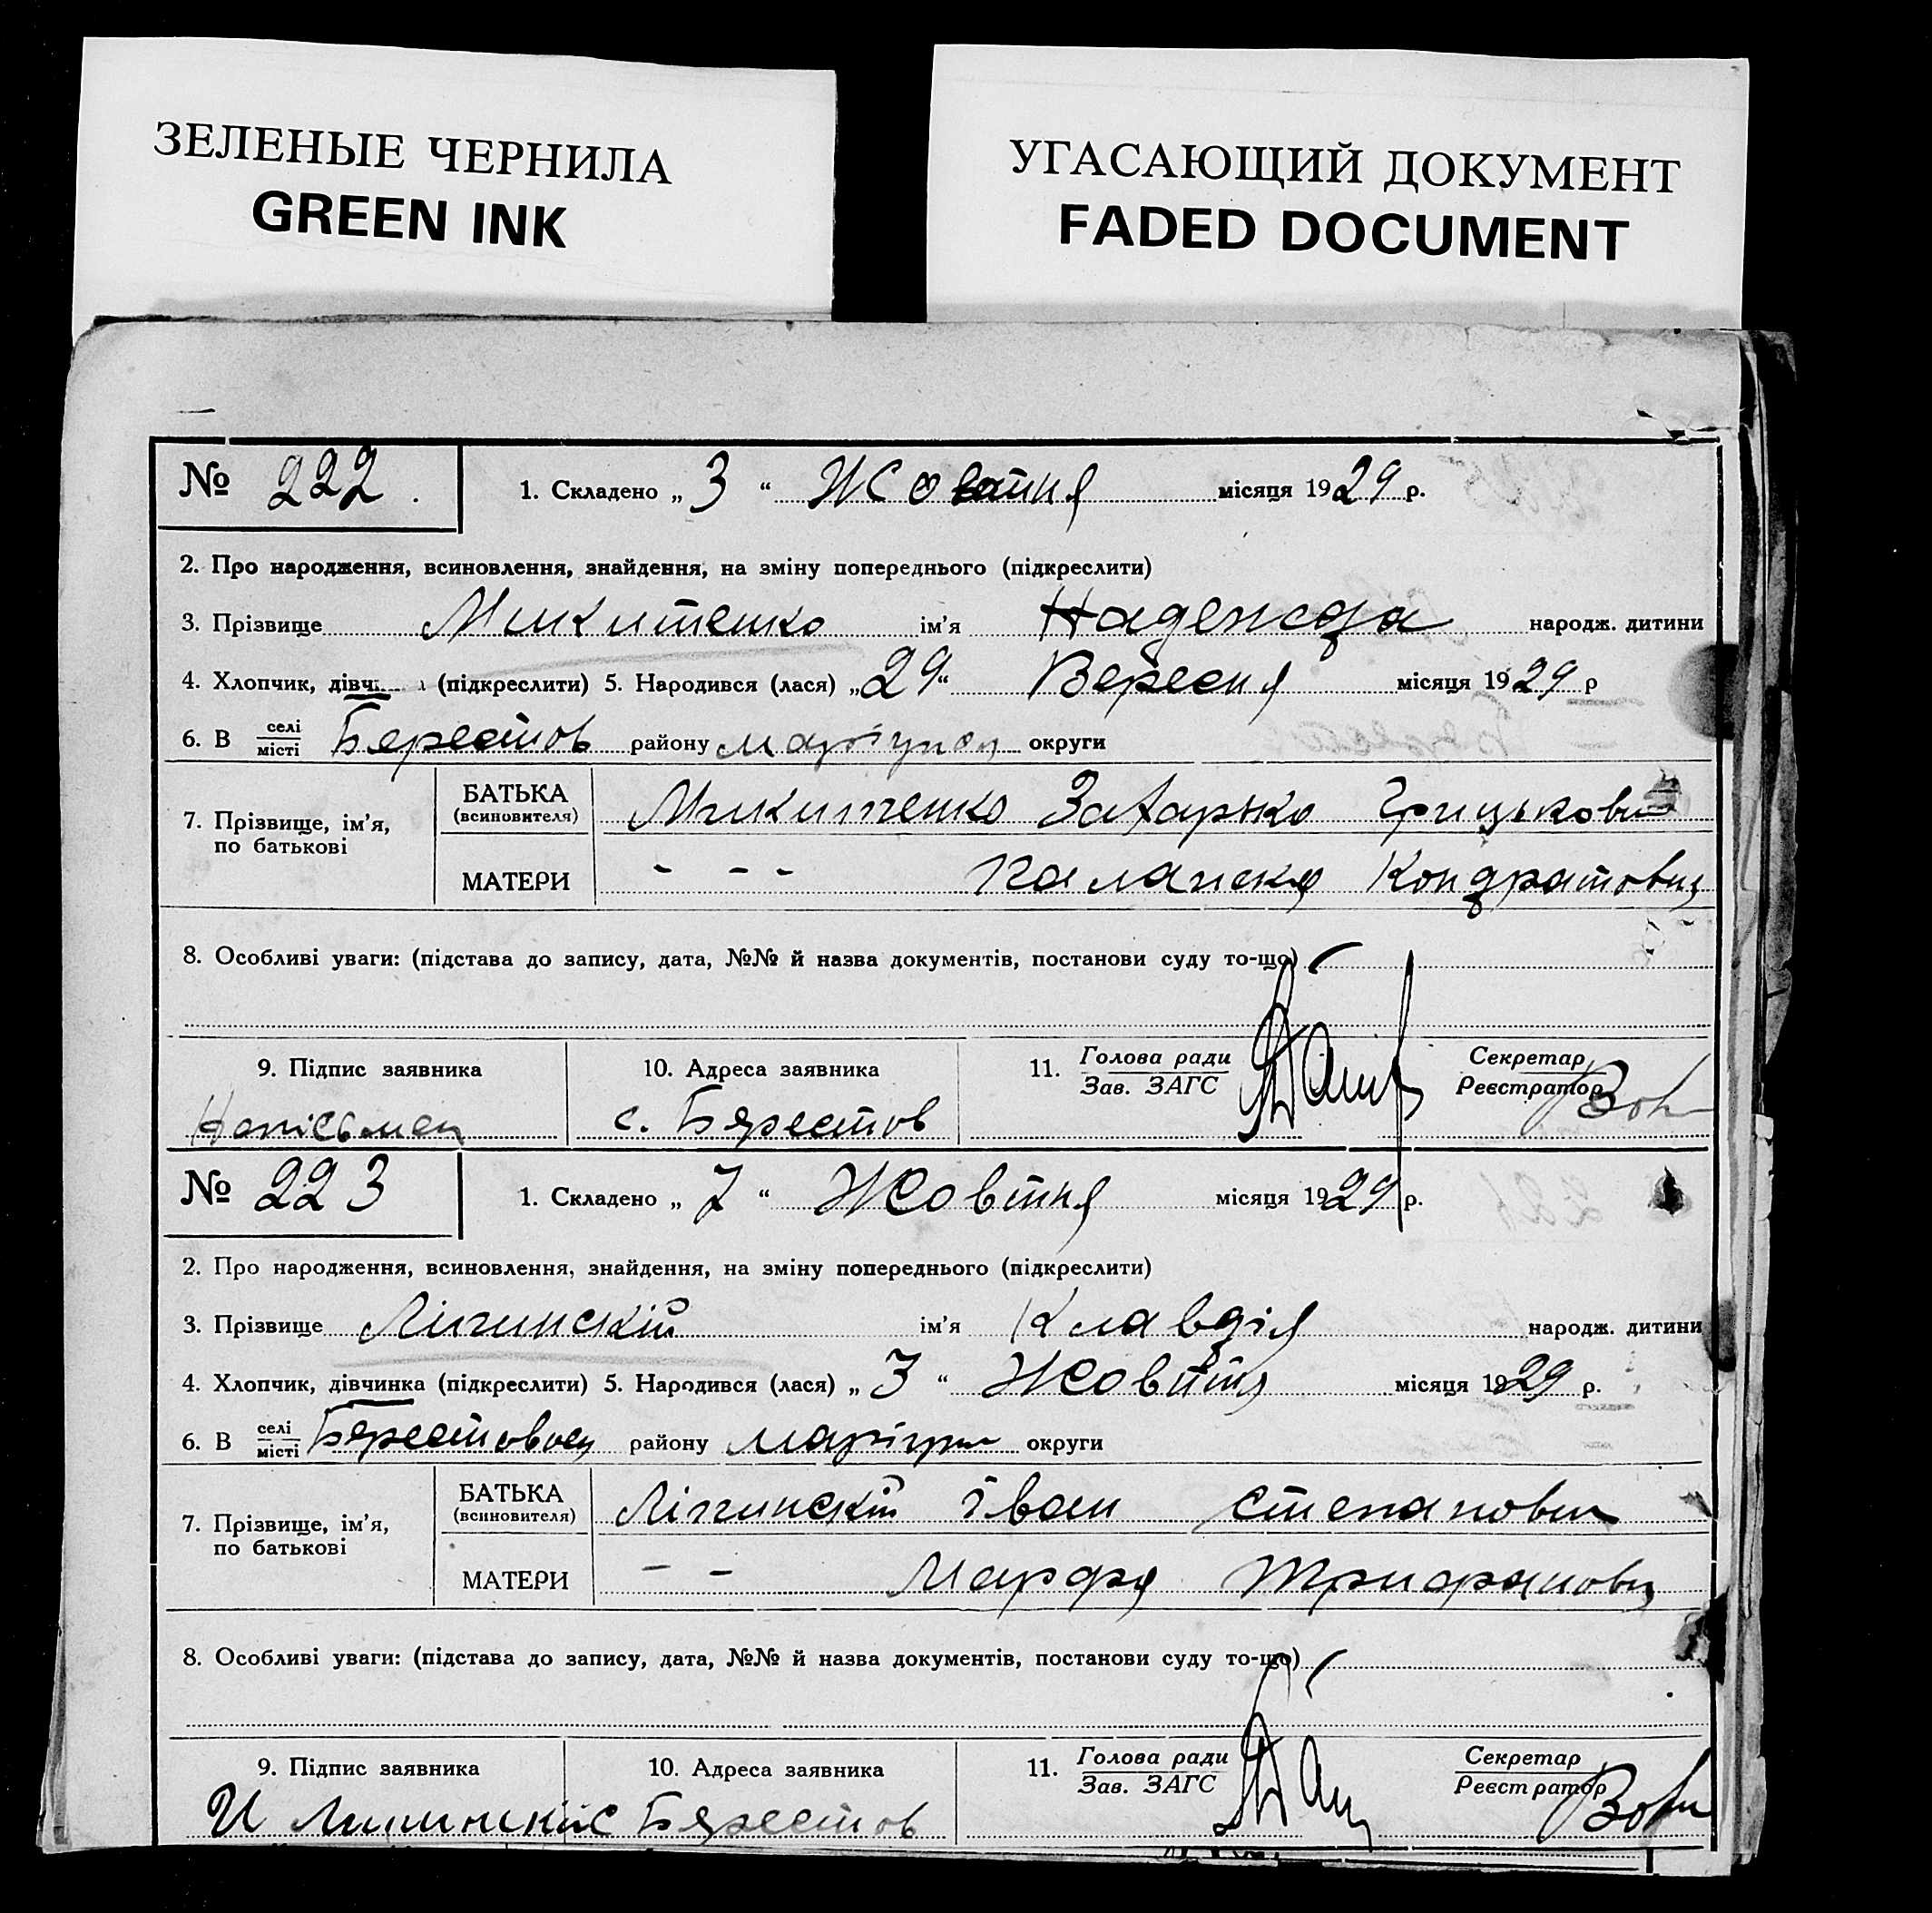 ЗЕЛЕНЫЕ ЧЕРНИЛА
GREEN INK
УГАСАЮЩИЙ ДОКУМЕНТ
FADED DOCUMENT
№ 222. 1. Складено „3“ Жовтня місяця 1929 р.
2. Про народження, всиновлення, знайдення, на зміну попереднього (підкреслити)
3. Прізвище Микитенко ім’я Надежда народж. дитини
4. Хлопчик, дівч (підкреслити) 5. Народився (лася) „29“ Вересня місяця 1929 р
6. В селі місті Берестов району округи
7. Прізвище, ім’я, по батькові
БАТЬКА (всиновителя) Микитенко Захарько Грицькович
МАТЕРИ - - - Кондратовна
8. Особливі уваги: (підстава до запису, дата, №№ й назва документів, постанови суду то-що)
9. Підпис заявника 10. Адреса заявника 11. Голова ради Зав. ЗАГС Секретар Реєстратор
с. Берестов
№ 223 1. Складено „7“ Жовтня місяця 1929 р.
2. Про народження, всиновлення, знайдення, на зміну попереднього (підкреслити)
3. Прізвище ім’я Клавдія народж. дитини
4. Хлопчик, дівчинка (підкреслити) 5. Народився (лася) „3“ Жовтня місяця 1929 р.
6. В селі місті району округи
7. Прізвище, ім’я, по батькові
БАТЬКА (всиновителя) Іван Степанович
МАТЕРИ - - Марфа
8. Особливі уваги: (підстава до запису, дата, №№ й назва документів, постанови суду то-що)
9. Підпис заявника 10. Адреса заявника 11. Голова ради Зав. ЗАГС Секретар Реєстратор
с Берестов